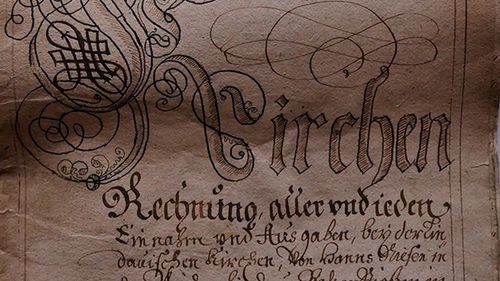 Kirchen
Rechnung, aller vnd ieden
Ein nahm vnd Aus gaben, beÿ der in
dauischen Kirchen, von Hanns Riesen in